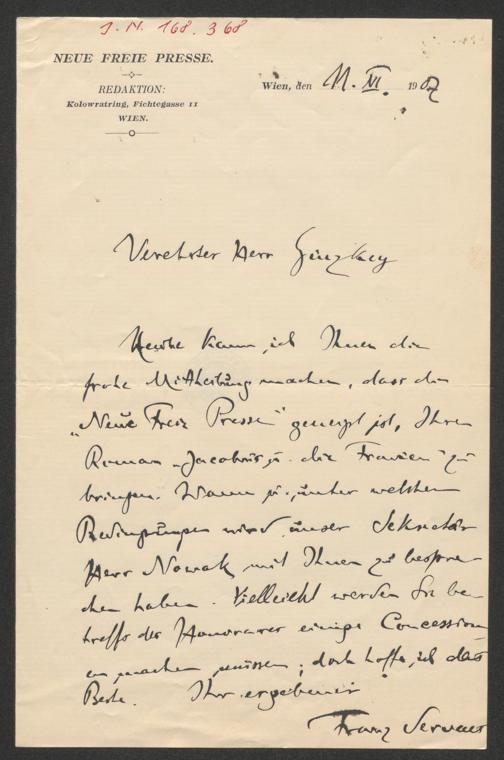 J. N. 168.368
NEUE FREIE PRESSE.
REDAKTION:
Kolowratring, Fichtegasse 11
WIEN.
Wien, den 11. XI. 1907
Verehrter Herr Ginzkey
Heute kann ich Ihnen die
frohe Mittheilung machen, dass die
„Neue Freie Presse" geneigt ist, Ihren
Roman „Jacobus u. die Frauen" zu
bringen. Wann u. unter welchen
Bedingungen wird unser Sekretär
Herr Nowak mit Ihnen zu bespre-
chen haben. Vielleicht werden Sie be-
treffs des Honorares einige Concession-
en machen müssen; doch hoffe ich das
Beste. Ihr ergebener
Franz Servaes